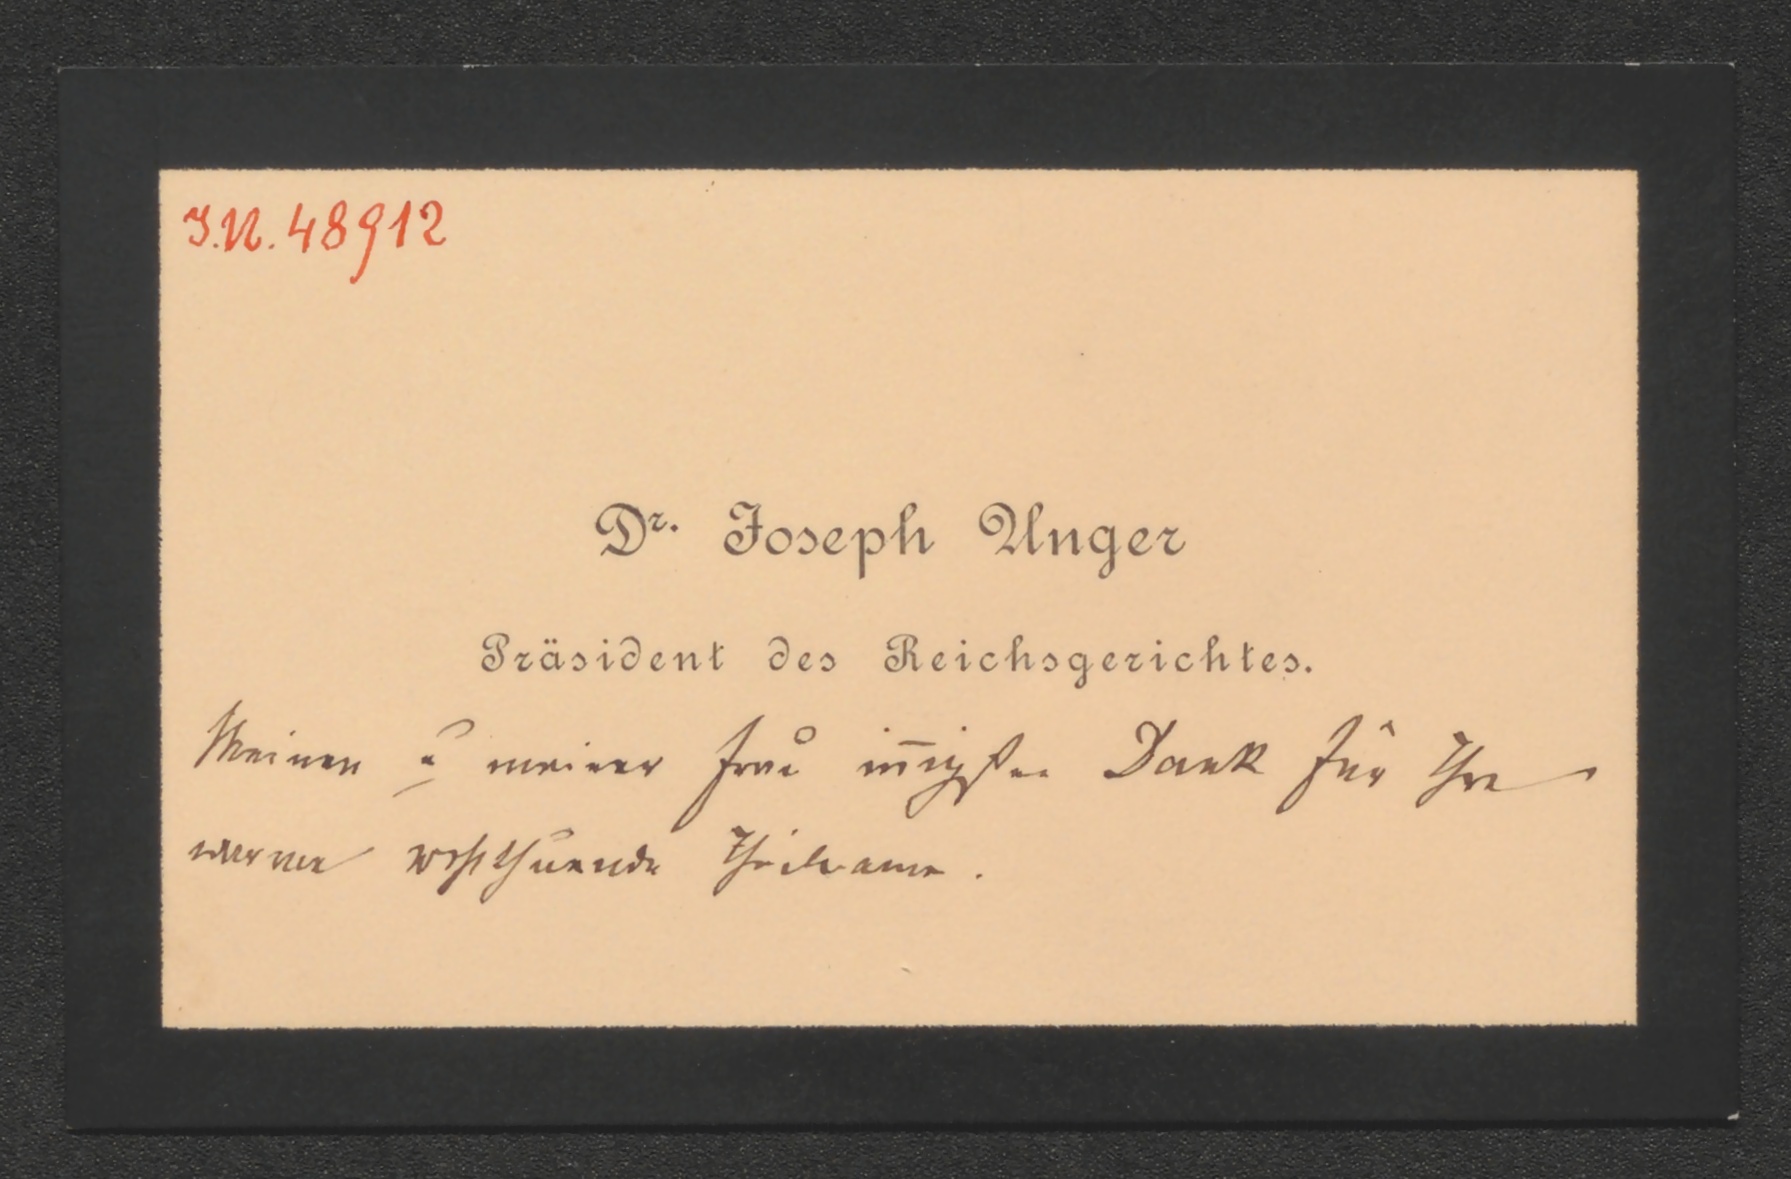 J.N. 48912
Dr. Joseph Unger
Präsident des Reichsgerichtes.
Meinen u meiner Frau iñigsten Dank für Ihre
warme wohlthuende Theilname.